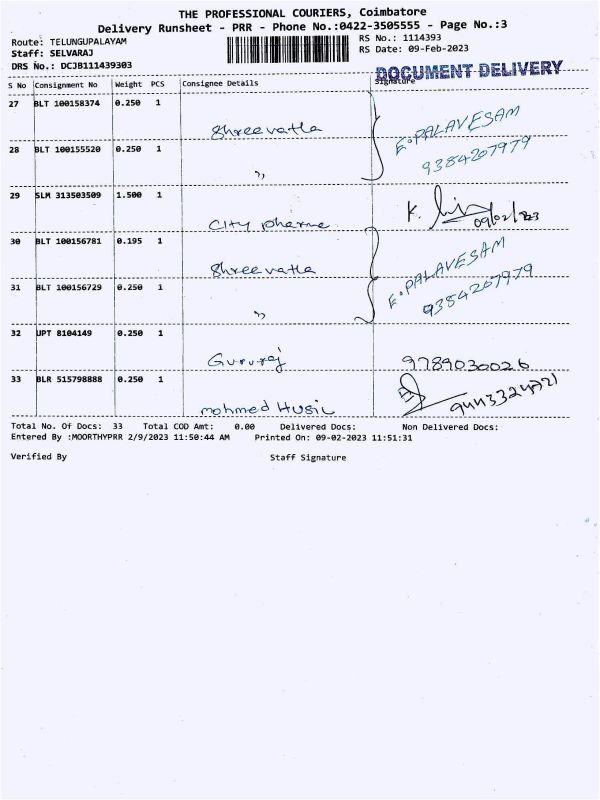 THE PROFESSIONAL COURIERS, Coimbatore
Delivery Runsheet - PRR - Phone No.:0422-3505555 - Page No.:3
Route: TELUNGUPALAYAM RS No.: 1114393
Staff: SELVARAJ RS Date: 09-Feb-2023
DRS No.: DCJB111439303
DOCUMENT DELIVERY
S No Consignment No Weight PCS Consignee Details Signature
27 BLT 100158374 0.250 1
Shreevatla E.PALAVESAM
28 BLT 100155520 0.250 1 9384207979
"
29 SLM 313503509 1.500 1
City pharma K. 09/02/23
30 BLT 100156781 0.195 1
Shreevatla E.PALAVESAM
31 BLT 100156729 0.250 1 9384207979
"
32 UPT 8104149 0.250 1
Gururaj 9789030026
33 BLR 515798888 0.250 1
mohmed Husic
Total No. Of Docs: 33 Total COD Amt: 0.00 Delivered Docs: Non Delivered Docs:
Entered By :MOORTHYPRR 2/9/2023 11:50:44 AM Printed On: 09-02-2023 11:51:31
Verified By Staff Signature